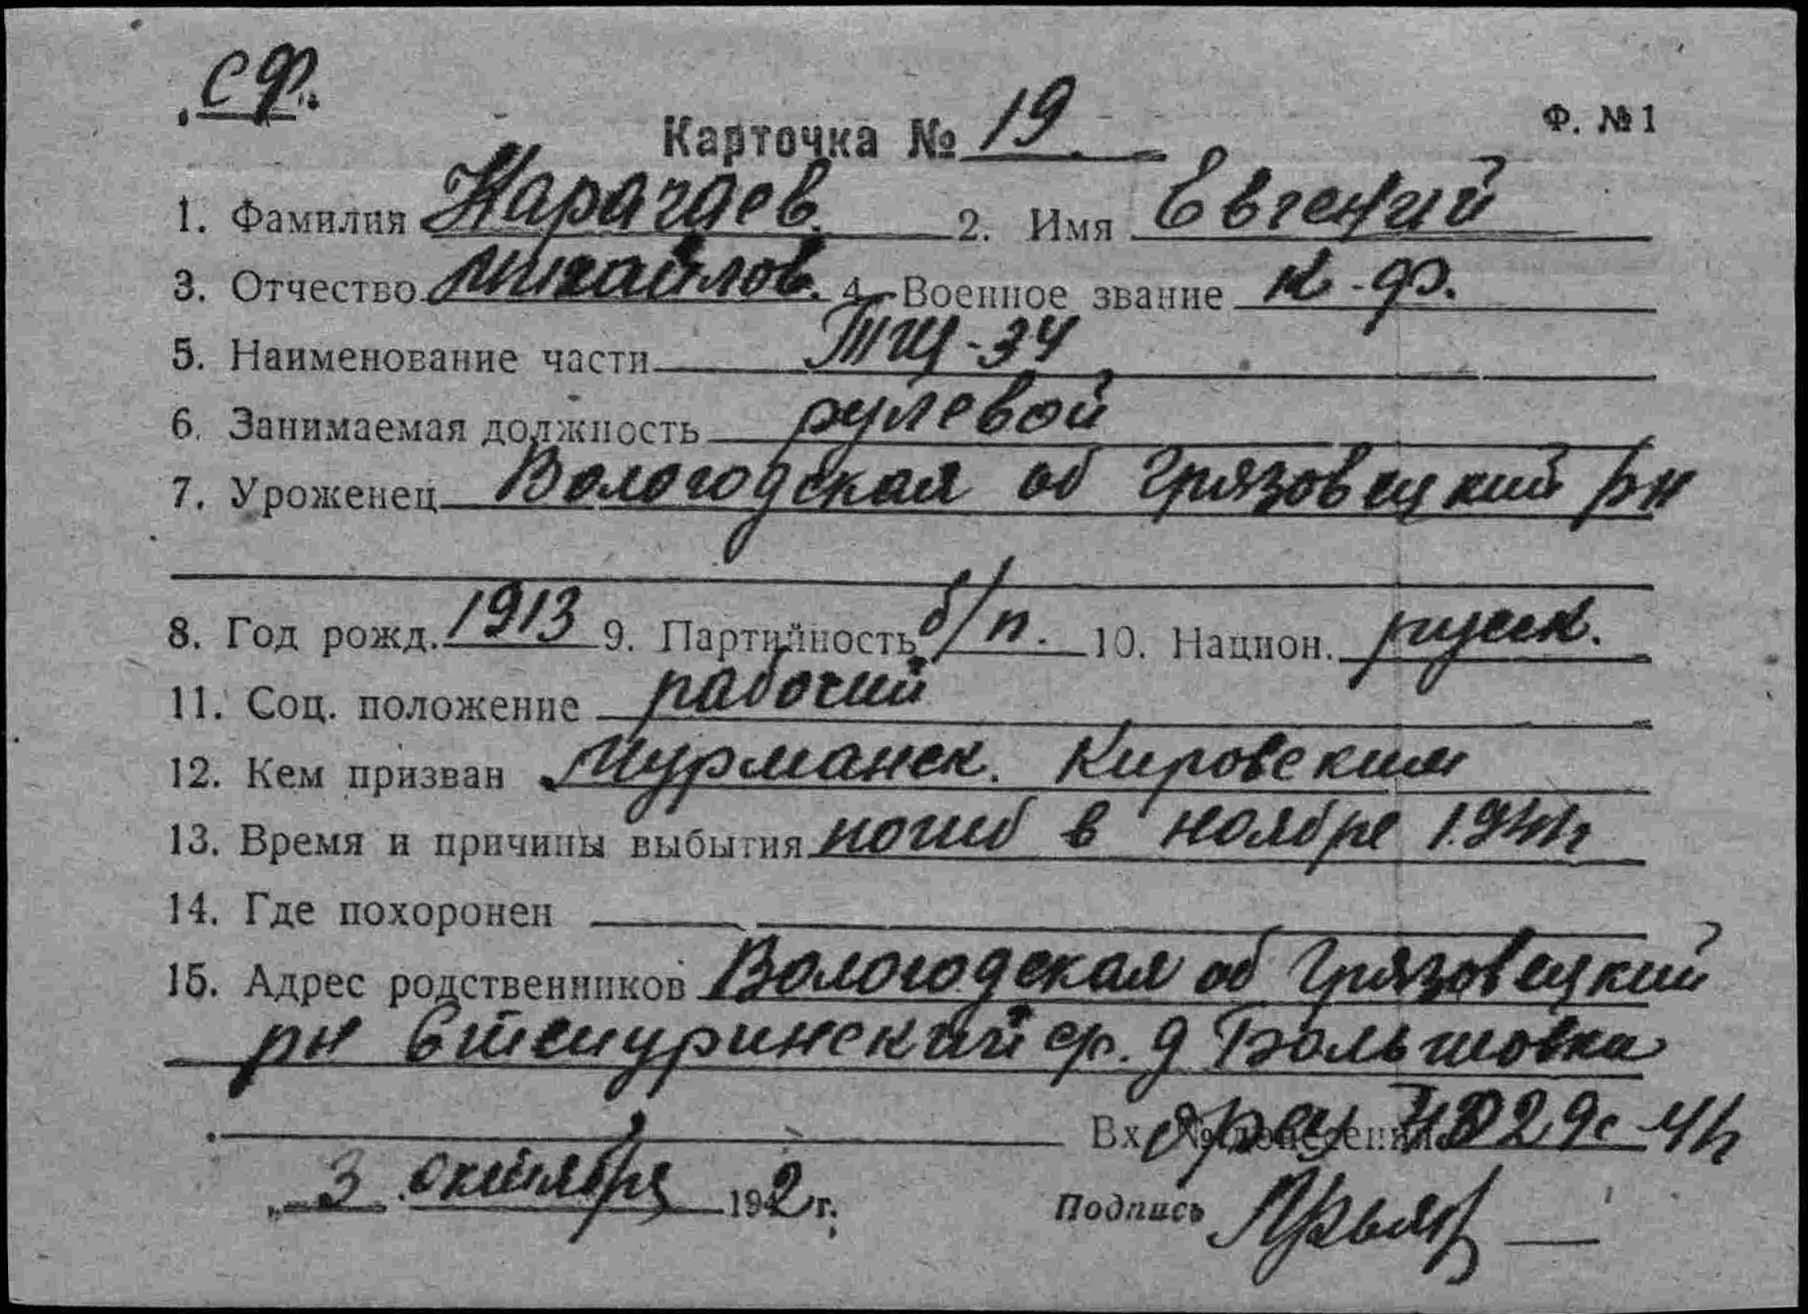 СФ.
Карточка № 19 Ф. № 1
1. Фамилия Карачаев. 2. Имя Евгений
3. Отчество Михайлов. 4. Военное звание к-ф.
5. Наименование части ТЩ-34
6. Занимаемая должность рулевой
7. Уроженец Вологодская об Грязовецкий рн
8. Год рожд. 1913 9. Партийность б/п. 10. Национ. русск.
11. Соц. положение рабочий
12. Кем призван Мурманск. Кировским
13. Время и причины выбытия погиб в ноябре 1941г
14. Где похоронен
15. Адрес родственников Вологодская об Грязовецкий
рн с. д Большовка
Вх. № донесения 029с-41г
„ 3 октября 1942 г. Подпись